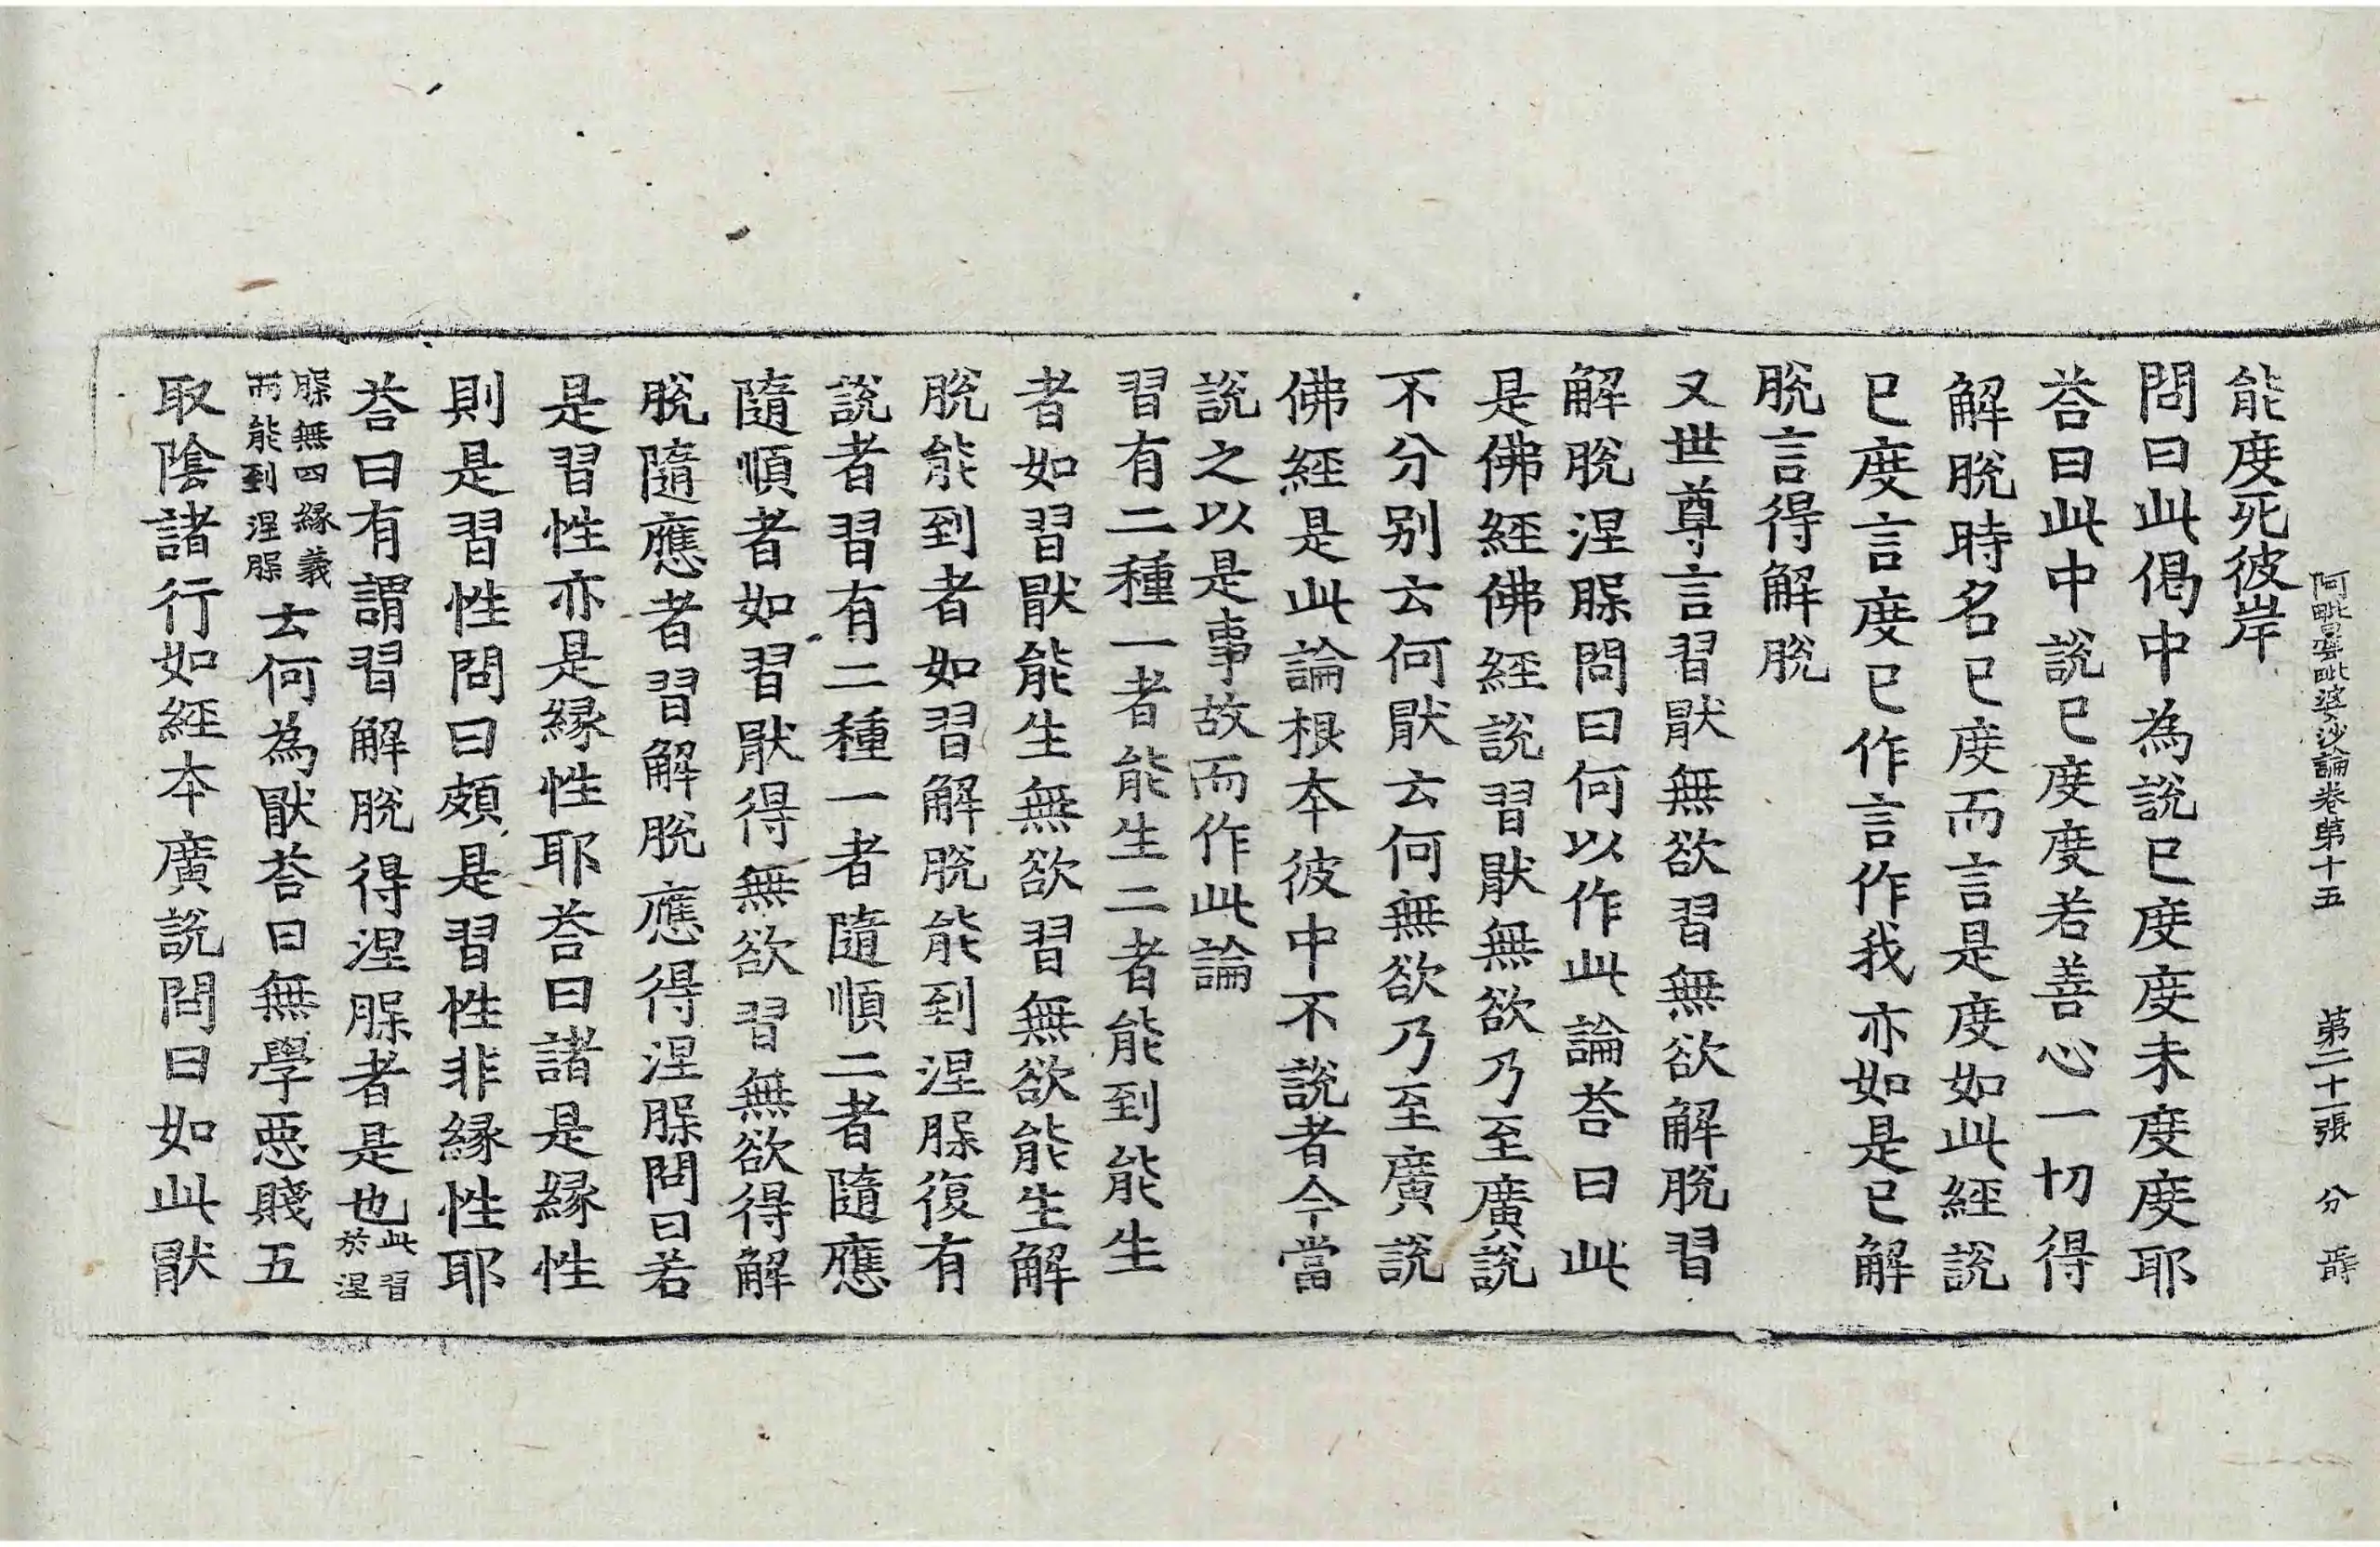 阿毗曇毗婆沙論卷第十五 第二十一張 分
能度死彼岸
問曰此偈中為說已度度未度度耶
荅曰此中說已度度若善心一切得
解脫時名已度而言是度如此經說
已度言度已作言作我亦如是已解
脫言得解脫
又世尊言習猒無欲習無欲解脫習
解脫涅槃問曰何以作此論荅曰此
是佛經佛經說習猒無欲乃至廣說
不分别云何猒云何無欲乃至廣說
佛經是此論根本彼中不說者今當
說之以是事故而作此論
習有二種一者能生二者能到能生
者如習猒能生無欲習無欲能生解
脫能到者如習解脫能到涅槃復有
說者習有二種一者隨順二者隨應
隨順者如習猒得無欲習無欲得解
脫隨應者習解脫應得涅槃問曰若
是習性亦是緣性耶荅曰諸是緣性
則是習性問曰頗是習性非緣性耶
荅曰有謂習解脫得涅槃者是也此習於涅
槃無四緣義而能到涅槃云何為猒荅曰無學惡賤五
取陰諸行如經本廣說問曰如此猒